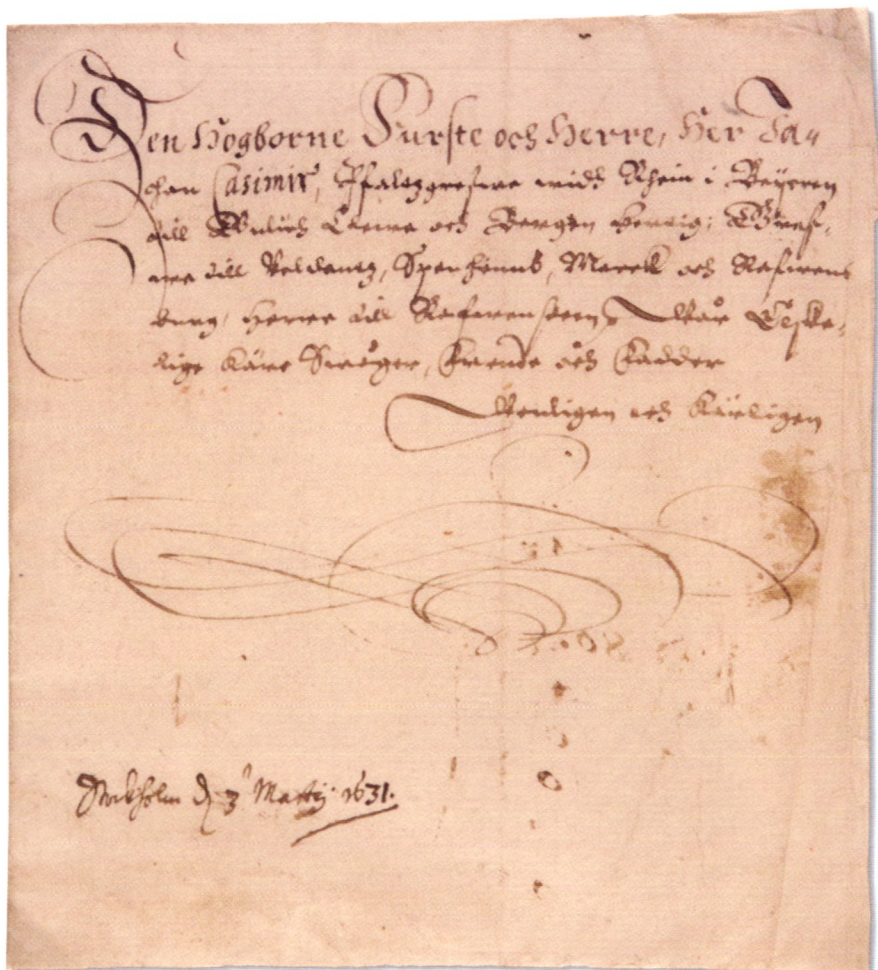 Den Högborne Furste och Herre, Her Ja„
chan Casimir, Pfaltzgrefwe widh Rhein i Beyeren
till Gulich Clewe och Bergen Hertig; Gref„
we till Veldentz, Spanheimb, Marck och Rafwens
burg, Herre till Rafwensteen, Vår Elske„
lige Käre Swåger, Frende och Fadder
Venligen och Kärligen
Stockholm d 3 Martij 1631.